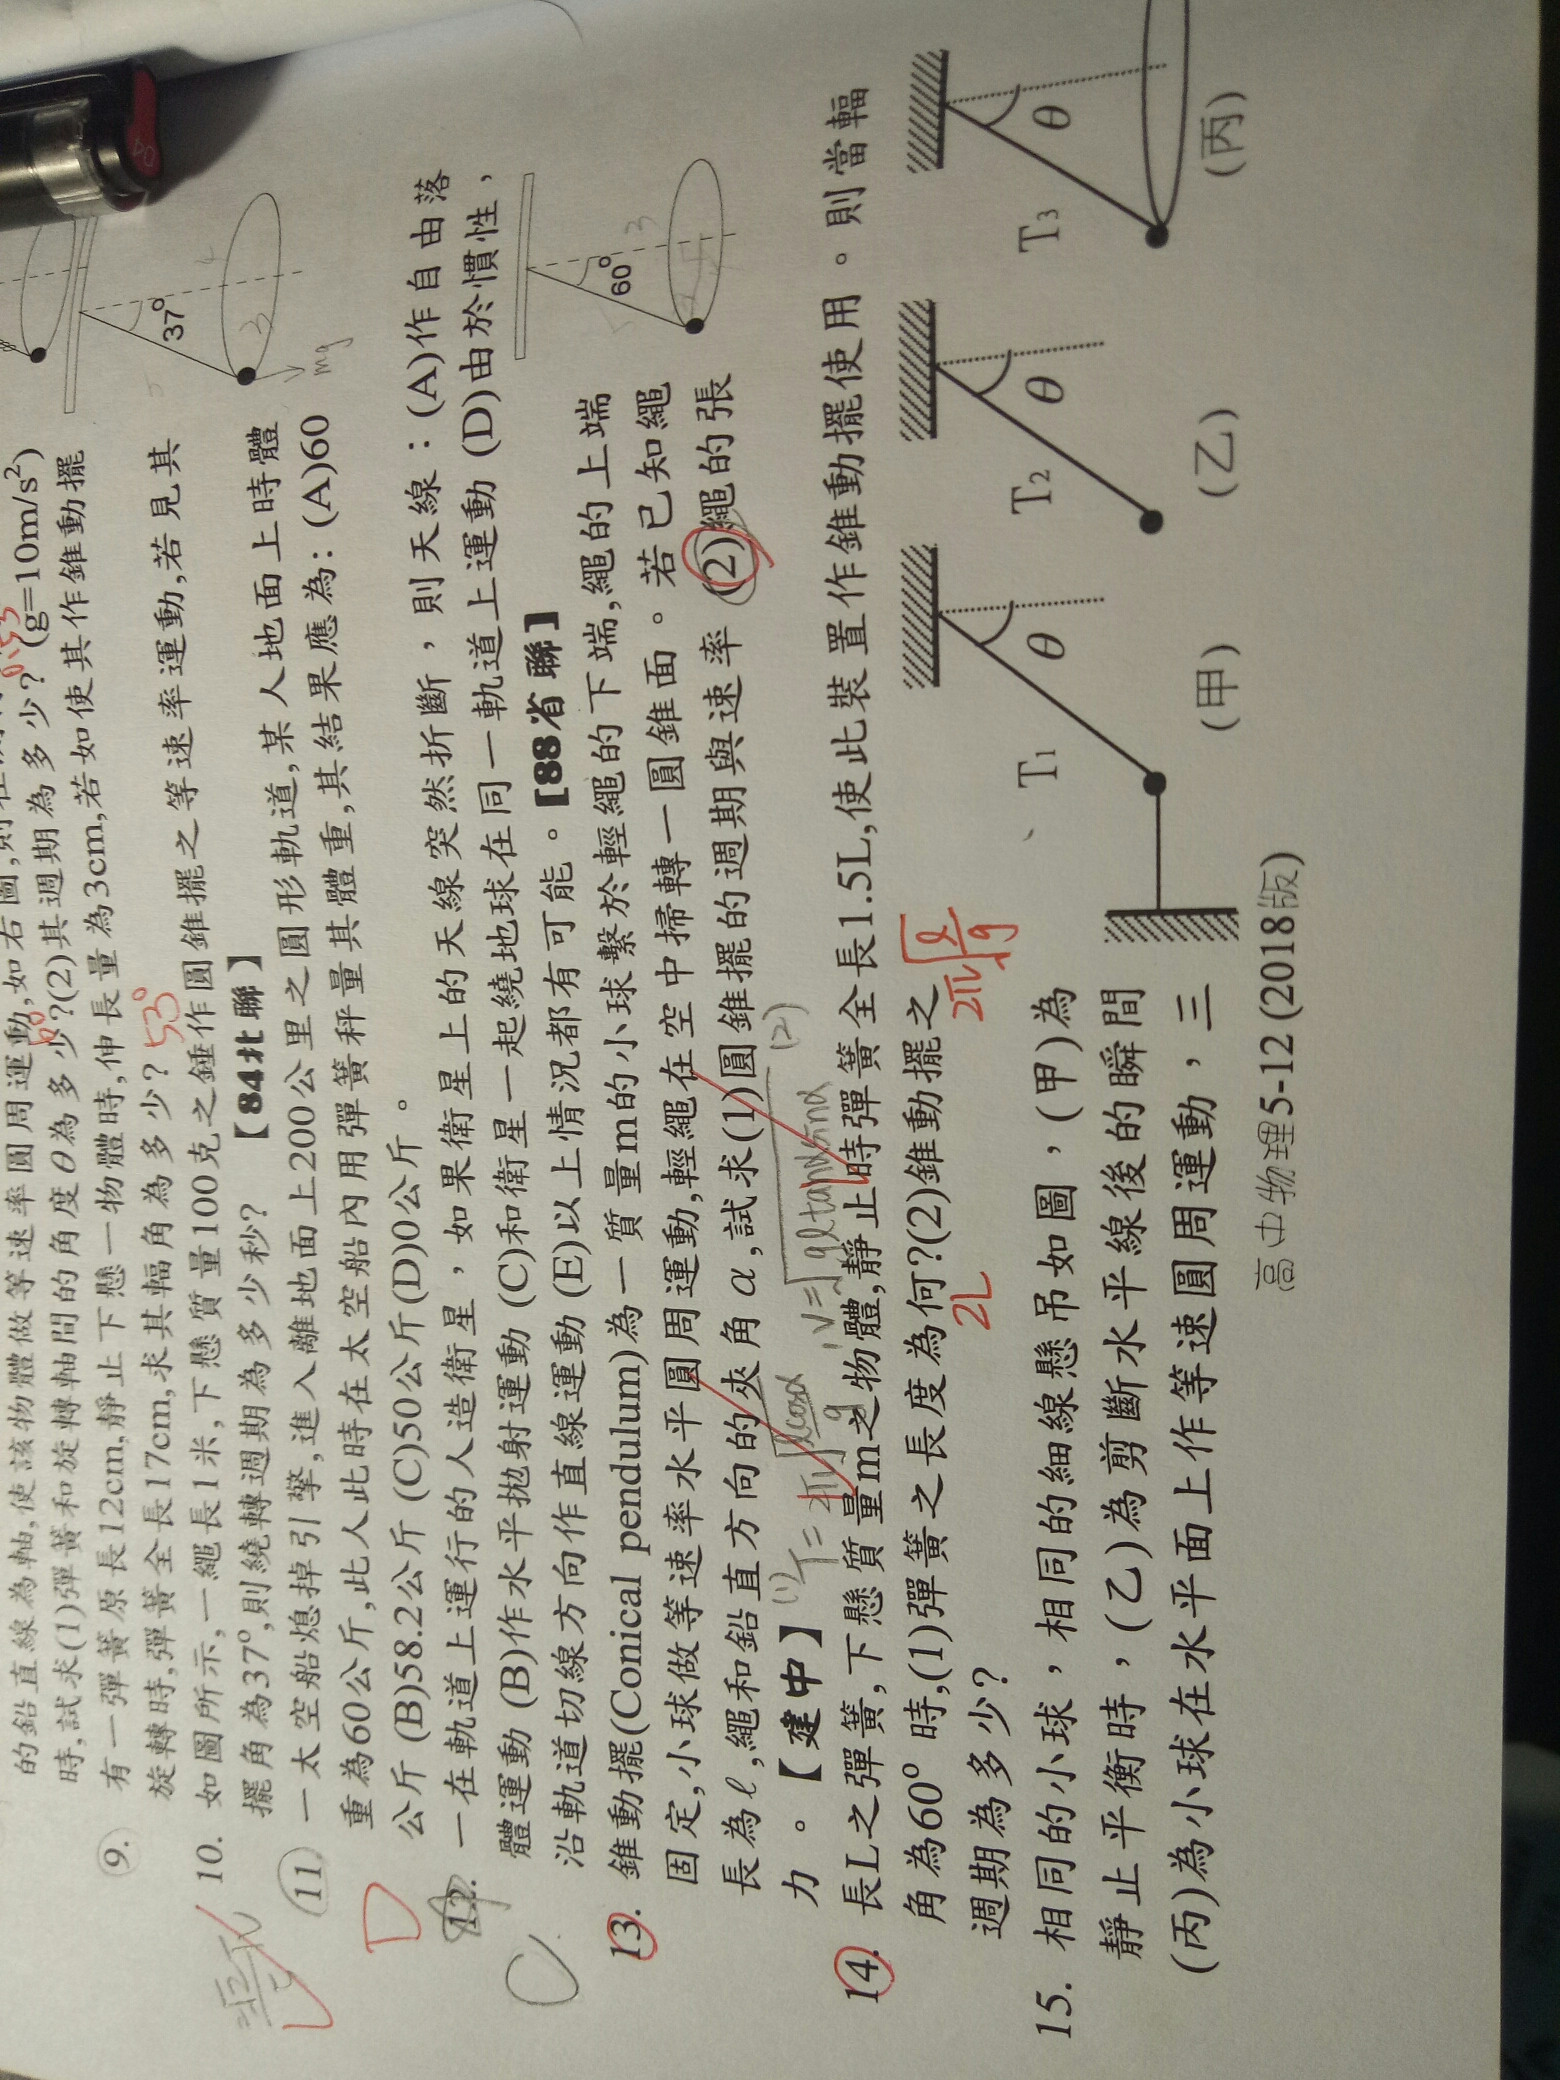 的鉛直線為軸,使該物體做等速率圓周運動,如右圖,則在
時,試求(1)彈簧和旋轉軸間的角度θ為多少?(2)其週期為多少?(g=10m/s²)
9. 有一彈簧原長12cm,靜止下懸一物體時,伸長量為3cm,若如使其作錐動擺
旋轉時,彈簧全長17cm,求其輻角為多少? 53°
10. 如圖所示,一繩長1米,下懸質量100克之錘作圓錐擺之等速率運動,若見其
擺角為37°,則繞轉週期為多少秒? 【84北聯】
37°
3
4
mg
11. 一太空船熄掉引擎,進入離地面上200公里之圓形軌道,某人地面上時體
重為60公斤,此人此時在太空船內用彈簧秤量其體重,其結果應為:(A)60
公斤 (B)58.2公斤 (C)50公斤(D)0公斤。
D
12. 一在軌道上運行的人造衛星,如果衛星上的天線突然折斷,則天線:(A)作自由落
體運動 (B)作水平拋射運動 (C)和衛星一起繞地球在同一軌道上運動 (D)由於慣性,
沿軌道切線方向作直線運動 (E)以上情況都有可能。【88省聯】
C
13. 錐動擺(Conical pendulum)為一質量m的小球繫於輕繩的下端,繩的上端
固定,小球做等速率水平圓周運動,輕繩在空中掃轉一圓錐面。若已知繩
長為ℓ,繩和鉛直方向的夾角α,試求(1)圓錐擺的週期與速率 (2)繩的張
力。【建中】
60°
3
(1) T=2π√(ℓcosα/g) V=√(gℓtanαsinα) (2)
14. 長L之彈簧,下懸質量m之物體,靜止時彈簧全長1.5L,使此裝置作錐動擺使用。則當輻
角為60°時,(1)彈簧之長度為何?(2)錐動擺之
週期為多少?
2L
2π√(ℓ/g)
15. 相同的小球,相同的細線懸吊如圖,(甲)為
靜止平衡時,(乙)為剪斷水平線後的瞬間
(丙)為小球在水平面上作等速圓周運動,三
T₁ θ
(甲)
T₂ θ
(乙)
T₃ θ
(丙)
高中物理5-12(2018版)
04